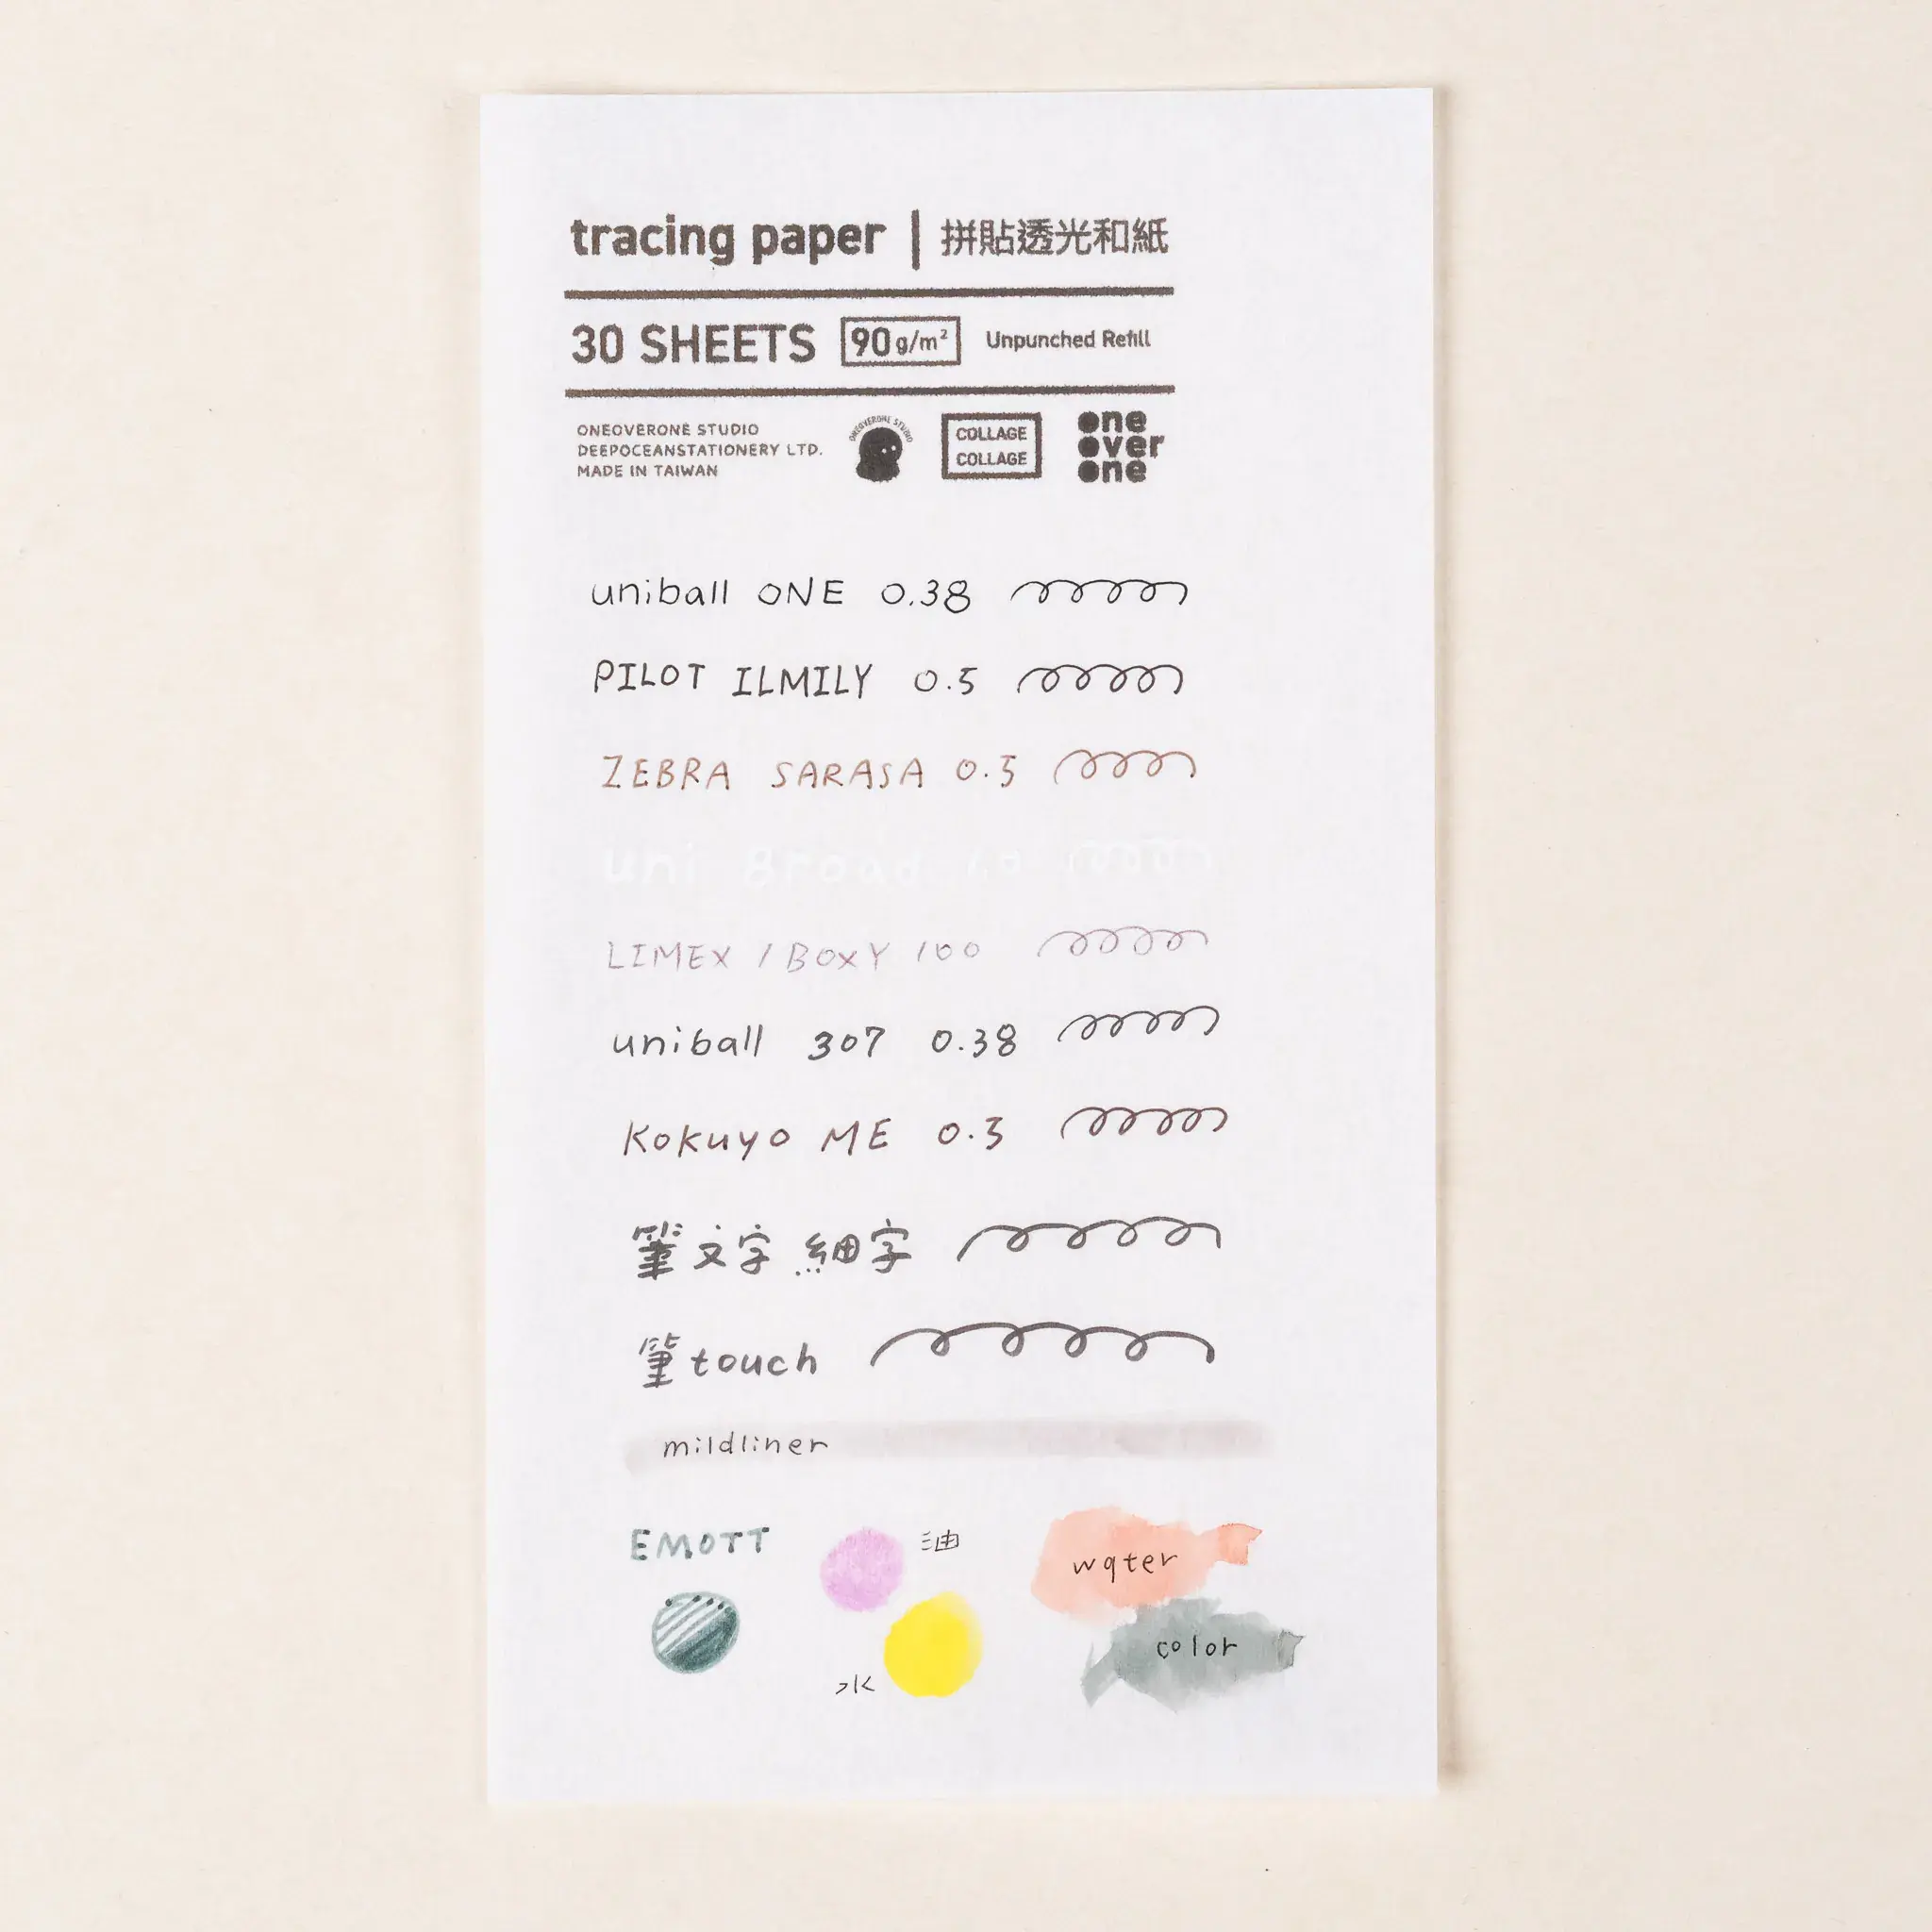 tracing paper | 拼貼透光和紙
30 SHEETS 90g/m² Unpunched Refill
ONEOVERONE STUDIO
DEEPOCEANSTATIONERY LTD.
MADE IN TAIWAN
ONEOVERONE STUDIO
COLLAGE
COLLAGE
one
over
one
uniball ONE 0.38
PILOT ILMILY 0.5
ZEBRA SARASA 0.5
uni Broad
LIMEX / BOXY 100
uniball 307 0.38
KOKUYO ME 0.3
筆文字 細字
筆touch
mildliner
EMOTT
油
水
water
color